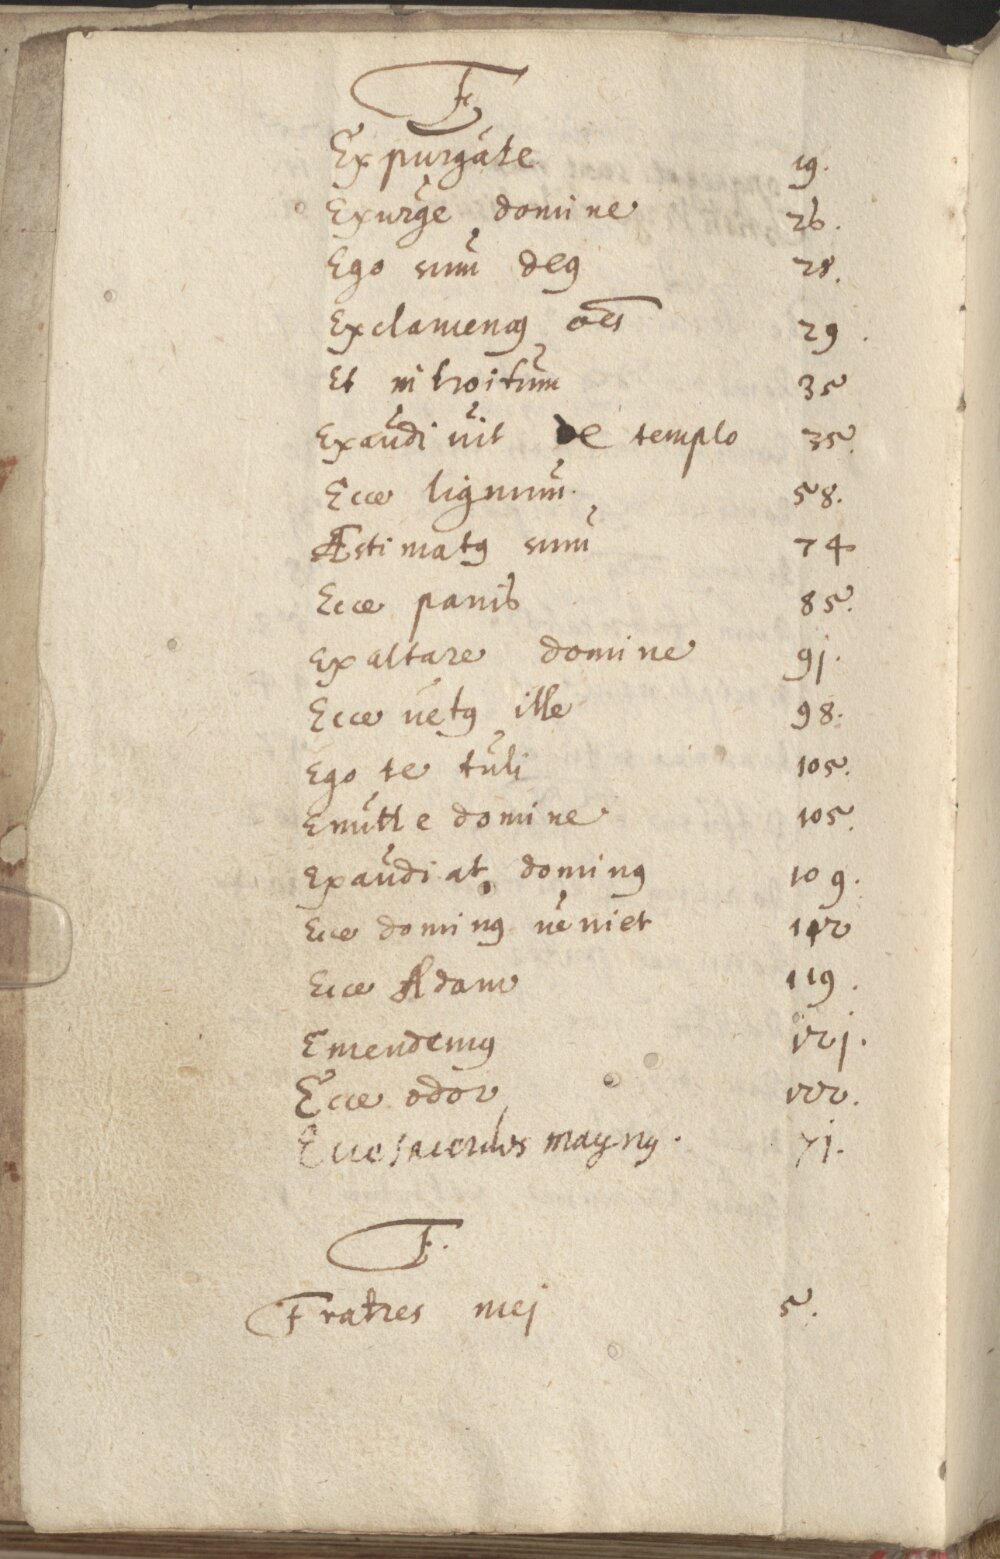 E
Expurgate 19.
Exurge domine 26.
Ego sum deꝰ 28.
Exclamemꝰ oēs 29.
Et introitum 35
Exaudiuit de templo 35.
Ecce lignum. 58.
Æstimatꝰ sum 74
Ecce panis 85.
Exaltare domine 9j.
Ecce uetꝰ ille 98.
Ego te tuli 105.
Emitte domine 105.
Exaudiat dominꝰ 109.
Ecce dominꝰ ueniet 112
Ecce Adam 119.
Emendemꝰ 12j.
Ecce odor 122.
Ecce sacerdos magnꝰ. 7j.
F.
Fratres mej 5.